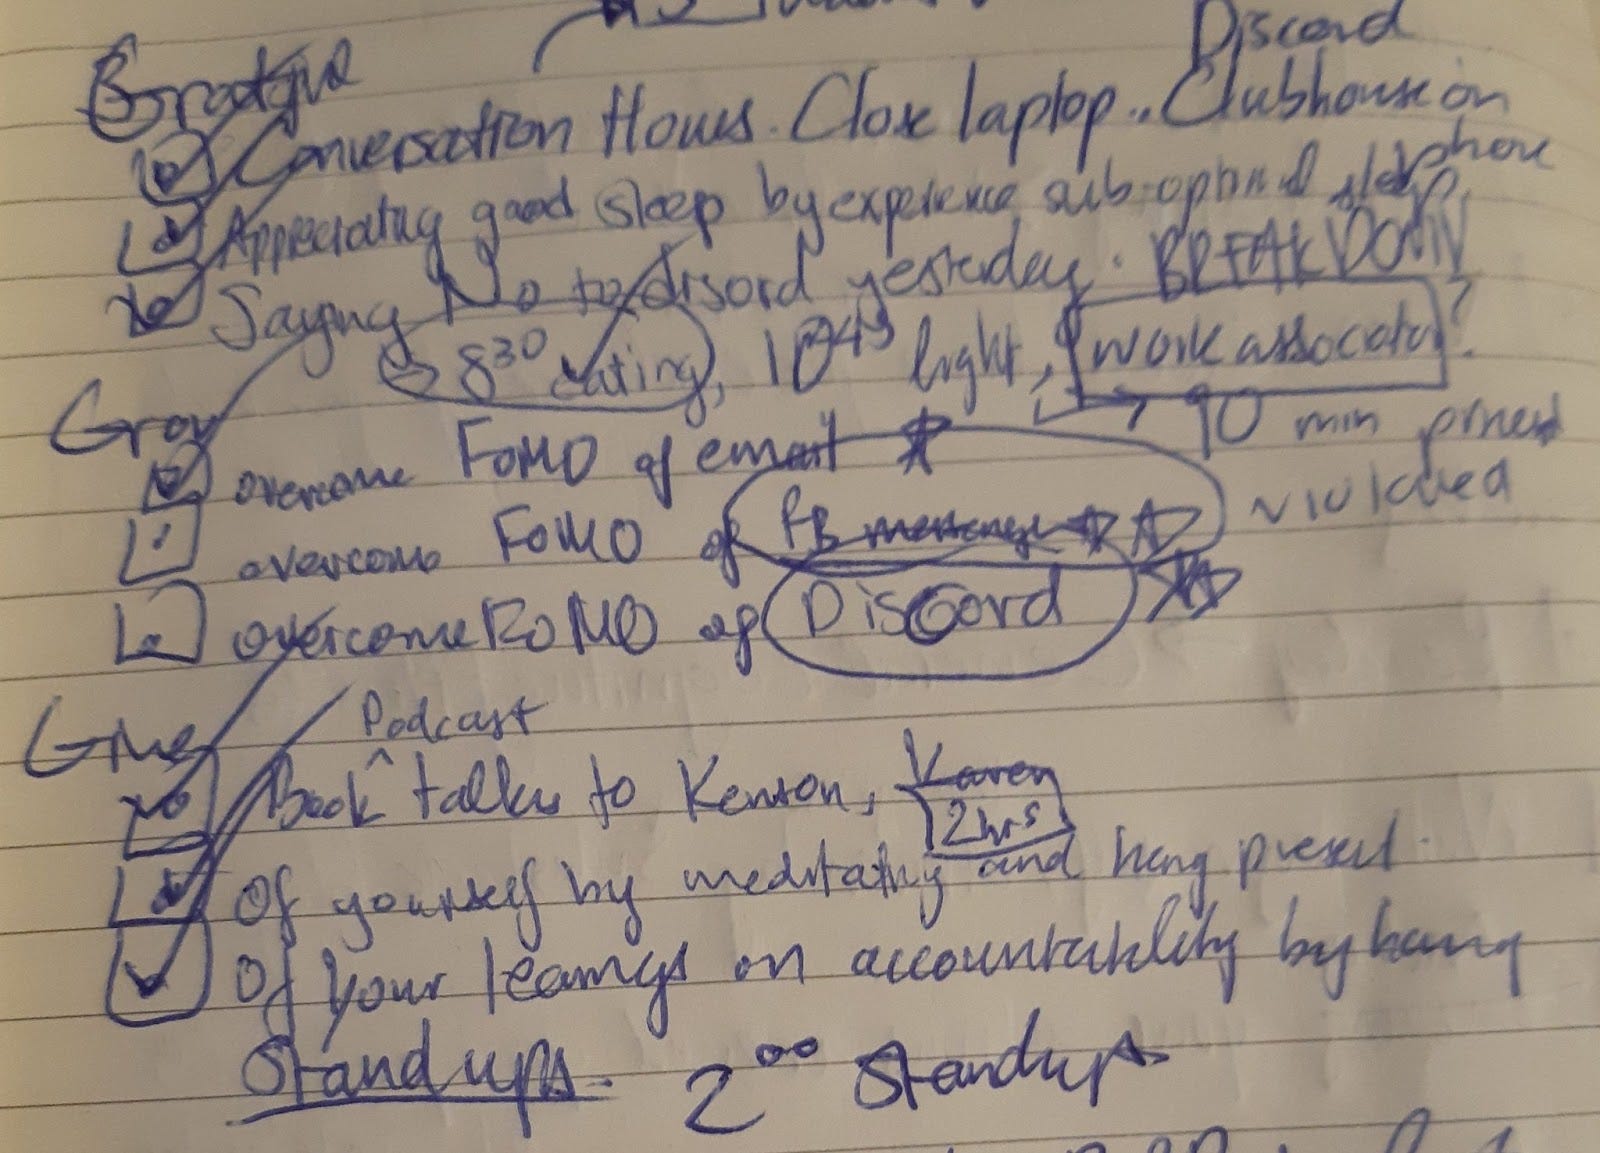 Discord
Conversation Hours. Close laptop.. Clubhouse on
phone
Appreciating good sleep by experience sub-optimal sleep
Saying No to disord yesterday. BREAKDOWN
8:30 eating, 10:45 light, work associator?
Grow
90 min
overcome FOMO of email
overcome FOMO of FB messenger
overcome FOMO of Discord
Give
Podcast
Book ^ talks to Kenton, Karen
2 hrs
Of yourself by meditating and being present.
Of your learnings on accountability by having
Standups. 2:00 Standups